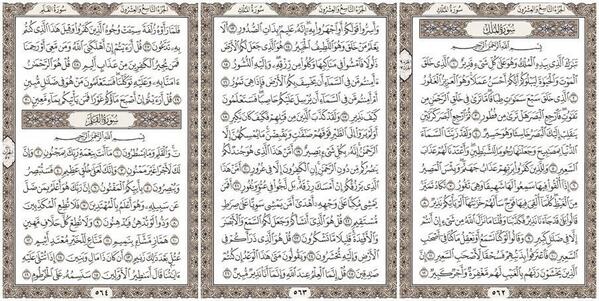 الجزء التاسع والعشرون
سورة الملك
سُورَةُ الْمُلْكِ
بِسْمِ اللَّهِ الرَّحْمَٰنِ الرَّحِيمِ
تَبَارَكَ الَّذِي بِيَدِهِ الْمُلْكُ وَهُوَ عَلَىٰ كُلِّ شَيْءٍ قَدِيرٌ ١ الَّذِي خَلَقَ
الْمَوْتَ وَالْحَيَاةَ لِيَبْلُوَكُمْ أَيُّكُمْ أَحْسَنُ عَمَلًا وَهُوَ الْعَزِيزُ الْغَفُورُ
٢ الَّذِي خَلَقَ سَبْعَ سَمَاوَاتٍ طِبَاقًا مَّا تَرَىٰ فِي خَلْقِ
الرَّحْمَٰنِ مِن تَفَاوُتٍ فَارْجِعِ الْبَصَرَ هَلْ تَرَىٰ مِن فُطُورٍ ٣ ثُمَّ ارْجِعِ الْبَصَرَ
كَرَّتَيْنِ يَنقَلِبْ إِلَيْكَ الْبَصَرُ خَاسِئًا وَهُوَ حَسِيرٌ ٤ وَلَقَدْ زَيَّنَّا السَّمَاءَ
الدُّنْيَا بِمَصَابِيحَ وَجَعَلْنَاهَا رُجُومًا لِّلشَّيَاطِينِ وَأَعْتَدْنَا لَهُمْ عَذَابَ
السَّعِيرِ ٥ وَلِلَّذِينَ كَفَرُوا بِرَبِّهِمْ عَذَابُ جَهَنَّمَ وَبِئْسَ الْمَصِيرُ
٦ إِذَا أُلْقُوا فِيهَا سَمِعُوا لَهَا شَهِيقًا وَهِيَ تَفُورُ ٧ تَكَادُ تَمَيَّزُ
مِنَ الْغَيْظِ كُلَّمَا أُلْقِيَ فِيهَا فَوْجٌ سَأَلَهُمْ خَزَنَتُهَا أَلَمْ يَأْتِكُمْ نَذِيرٌ ٨
قَالُوا بَلَىٰ قَدْ جَاءَنَا نَذِيرٌ فَكَذَّبْنَا وَقُلْنَا مَا نَزَّلَ اللَّهُ مِن شَيْءٍ إِنْ أَنتُمْ
إِلَّا فِي ضَلَالٍ كَبِيرٍ ٩ وَقَالُوا لَوْ كُنَّا نَسْمَعُ أَوْ نَعْقِلُ مَا كُنَّا فِي أَصْحَابِ
السَّعِيرِ ١٠ فَاعْتَرَفُوا بِذَنبِهِمْ فَسُحْقًا لِّأَصْحَابِ السَّعِيرِ ١١
إِنَّ الَّذِينَ يَخْشَوْنَ رَبَّهُم بِالْغَيْبِ لَهُم مَّغْفِرَةٌ وَأَجْرٌ كَبِيرٌ ١٢
٥٦٢
الجزء التاسع والعشرون
سورة الملك
وَأَسِرُّوا قَوْلَكُمْ أَوِ اجْهَرُوا بِهِ إِنَّهُ عَلِيمٌ بِذَاتِ الصُّدُورِ ١٣ أَلَا
يَعْلَمُ مَنْ خَلَقَ وَهُوَ اللَّطِيفُ الْخَبِيرُ ١٤ هُوَ الَّذِي جَعَلَ لَكُمُ الْأَرْضَ
ذَلُولًا فَامْشُوا فِي مَنَاكِبِهَا وَكُلُوا مِن رِّزْقِهِ وَإِلَيْهِ النُّشُورُ ١٥
أَأَمِنتُم مَّن فِي السَّمَاءِ أَن يَخْسِفَ بِكُمُ الْأَرْضَ فَإِذَا هِيَ تَمُورُ ١٦
أَمْ أَمِنتُم مَّن فِي السَّمَاءِ أَن يُرْسِلَ عَلَيْكُمْ حَاصِبًا فَسَتَعْلَمُونَ
كَيْفَ نَذِيرِ ١٧ وَلَقَدْ كَذَّبَ الَّذِينَ مِن قَبْلِهِمْ فَكَيْفَ كَانَ نَكِيرِ ١٨
أَوَلَمْ يَرَوْا إِلَى الطَّيْرِ فَوْقَهُمْ صَافَّاتٍ وَيَقْبِضْنَ مَا يُمْسِكُهُنَّ إِلَّا
الرَّحْمَٰنُ إِنَّهُ بِكُلِّ شَيْءٍ بَصِيرٌ ١٩ أَمَّنْ هَٰذَا الَّذِي هُوَ جُندٌ لَّكُمْ
يَنصُرُكُم مِّن دُونِ الرَّحْمَٰنِ إِنِ الْكَافِرُونَ إِلَّا فِي غُرُورٍ ٢٠ أَمَّنْ هَٰذَا
الَّذِي يَرْزُقُكُمْ إِنْ أَمْسَكَ رِزْقَهُ بَل لَّجُّوا فِي عُتُوٍّ وَنُفُورٍ ٢١ أَفَمَن
يَمْشِي مُكِبًّا عَلَىٰ وَجْهِهِ أَهْدَىٰ أَمَّن يَمْشِي سَوِيًّا عَلَىٰ صِرَاطٍ
مُّسْتَقِيمٍ ٢٢ قُلْ هُوَ الَّذِي أَنشَأَكُمْ وَجَعَلَ لَكُمُ السَّمْعَ وَالْأَبْصَارَ
وَالْأَفْئِدَةَ قَلِيلًا مَّا تَشْكُرُونَ ٢٣ قُلْ هُوَ الَّذِي ذَرَأَكُمْ فِي
الْأَرْضِ وَإِلَيْهِ تُحْشَرُونَ ٢٤ وَيَقُولُونَ مَتَىٰ هَٰذَا الْوَعْدُ إِن كُنتُمْ
صَادِقِينَ ٢٥ قُلْ إِنَّمَا الْعِلْمُ عِندَ اللَّهِ وَإِنَّمَا أَنَا نَذِيرٌ مُّبِينٌ ٢٦
٥٦٣
الجزء التاسع والعشرون
سورة القلم
فَلَمَّا رَأَوْهُ زُلْفَةً سِيئَتْ وُجُوهُ الَّذِينَ كَفَرُوا وَقِيلَ هَٰذَا الَّذِي كُنتُم
بِهِ تَدَّعُونَ ٢٧ قُلْ أَرَأَيْتُمْ إِنْ أَهْلَكَنِيَ اللَّهُ وَمَن مَّعِيَ أَوْ رَحِمَنَا
فَمَن يُجِيرُ الْكَافِرِينَ مِنْ عَذَابٍ أَلِيمٍ ٢٨ قُلْ هُوَ الرَّحْمَٰنُ
آمَنَّا بِهِ وَعَلَيْهِ تَوَكَّلْنَا فَسَتَعْلَمُونَ مَنْ هُوَ فِي ضَلَالٍ مُّبِينٍ
٢٩ قُلْ أَرَأَيْتُمْ إِنْ أَصْبَحَ مَاؤُكُمْ غَوْرًا فَمَن يَأْتِيكُم بِمَاءٍ مَّعِينٍ ٣٠
سُورَةُ الْقَلَمِ
بِسْمِ اللَّهِ الرَّحْمَٰنِ الرَّحِيمِ
ن وَالْقَلَمِ وَمَا يَسْطُرُونَ ١ مَا أَنتَ بِنِعْمَةِ رَبِّكَ بِمَجْنُونٍ ٢ وَإِنَّ
لَكَ لَأَجْرًا غَيْرَ مَمْنُونٍ ٣ وَإِنَّكَ لَعَلَىٰ خُلُقٍ عَظِيمٍ ٤ فَسَتُبْصِرُ
وَيُبْصِرُونَ ٥ بِأَييِّكُمُ الْمَفْتُونُ ٦ إِنَّ رَبَّكَ هُوَ أَعْلَمُ بِمَن ضَلَّ
عَن سَبِيلِهِ وَهُوَ أَعْلَمُ بِالْمُهْتَدِينَ ٧ فَلَا تُطِعِ الْمُكَذِّبِينَ ٨
وَدُّوا لَوْ تُدْهِنُ فَيُدْهِنُونَ ٩ وَلَا تُطِعْ كُلَّ حَلَّافٍ مَّهِينٍ ١٠
هَمَّازٍ مَّشَّاءٍ بِنَمِيمٍ ١١ مَّنَّاعٍ لِّلْخَيْرِ مُعْتَدٍ أَثِيمٍ ١٢ عُتُلٍّ
بَعْدَ ذَٰلِكَ زَنِيمٍ ١٣ أَن كَانَ ذَا مَالٍ وَبَنِينَ ١٤ إِذَا تُتْلَىٰ عَلَيْهِ
آيَاتُنَا قَالَ أَسَاطِيرُ الْأَوَّلِينَ ١٥ سَنَسِمُهُ عَلَى الْخُرْطُومِ ١٦
٥٦٤